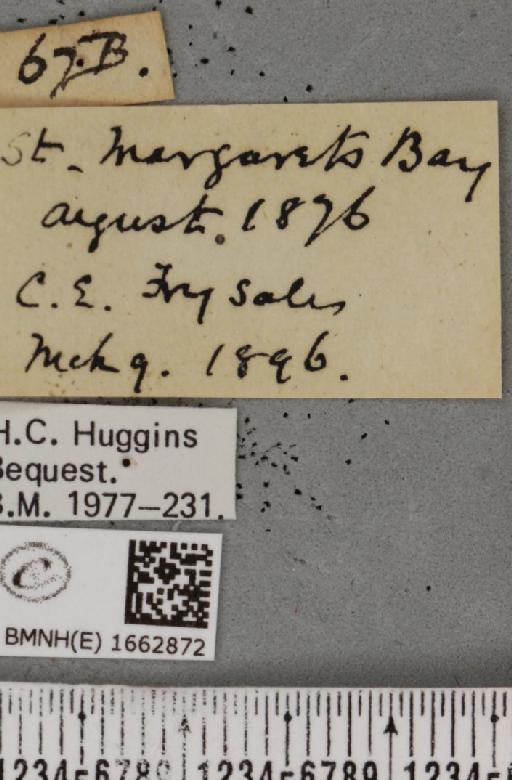 67.B.
St. Margarets Bay
august. 1896
C.E. Fry Sales
1896.
H.C. Huggins
Bequest.
B.M. 1977–231.
e
BMNH(E) 1662872
123456789 123456789 1234